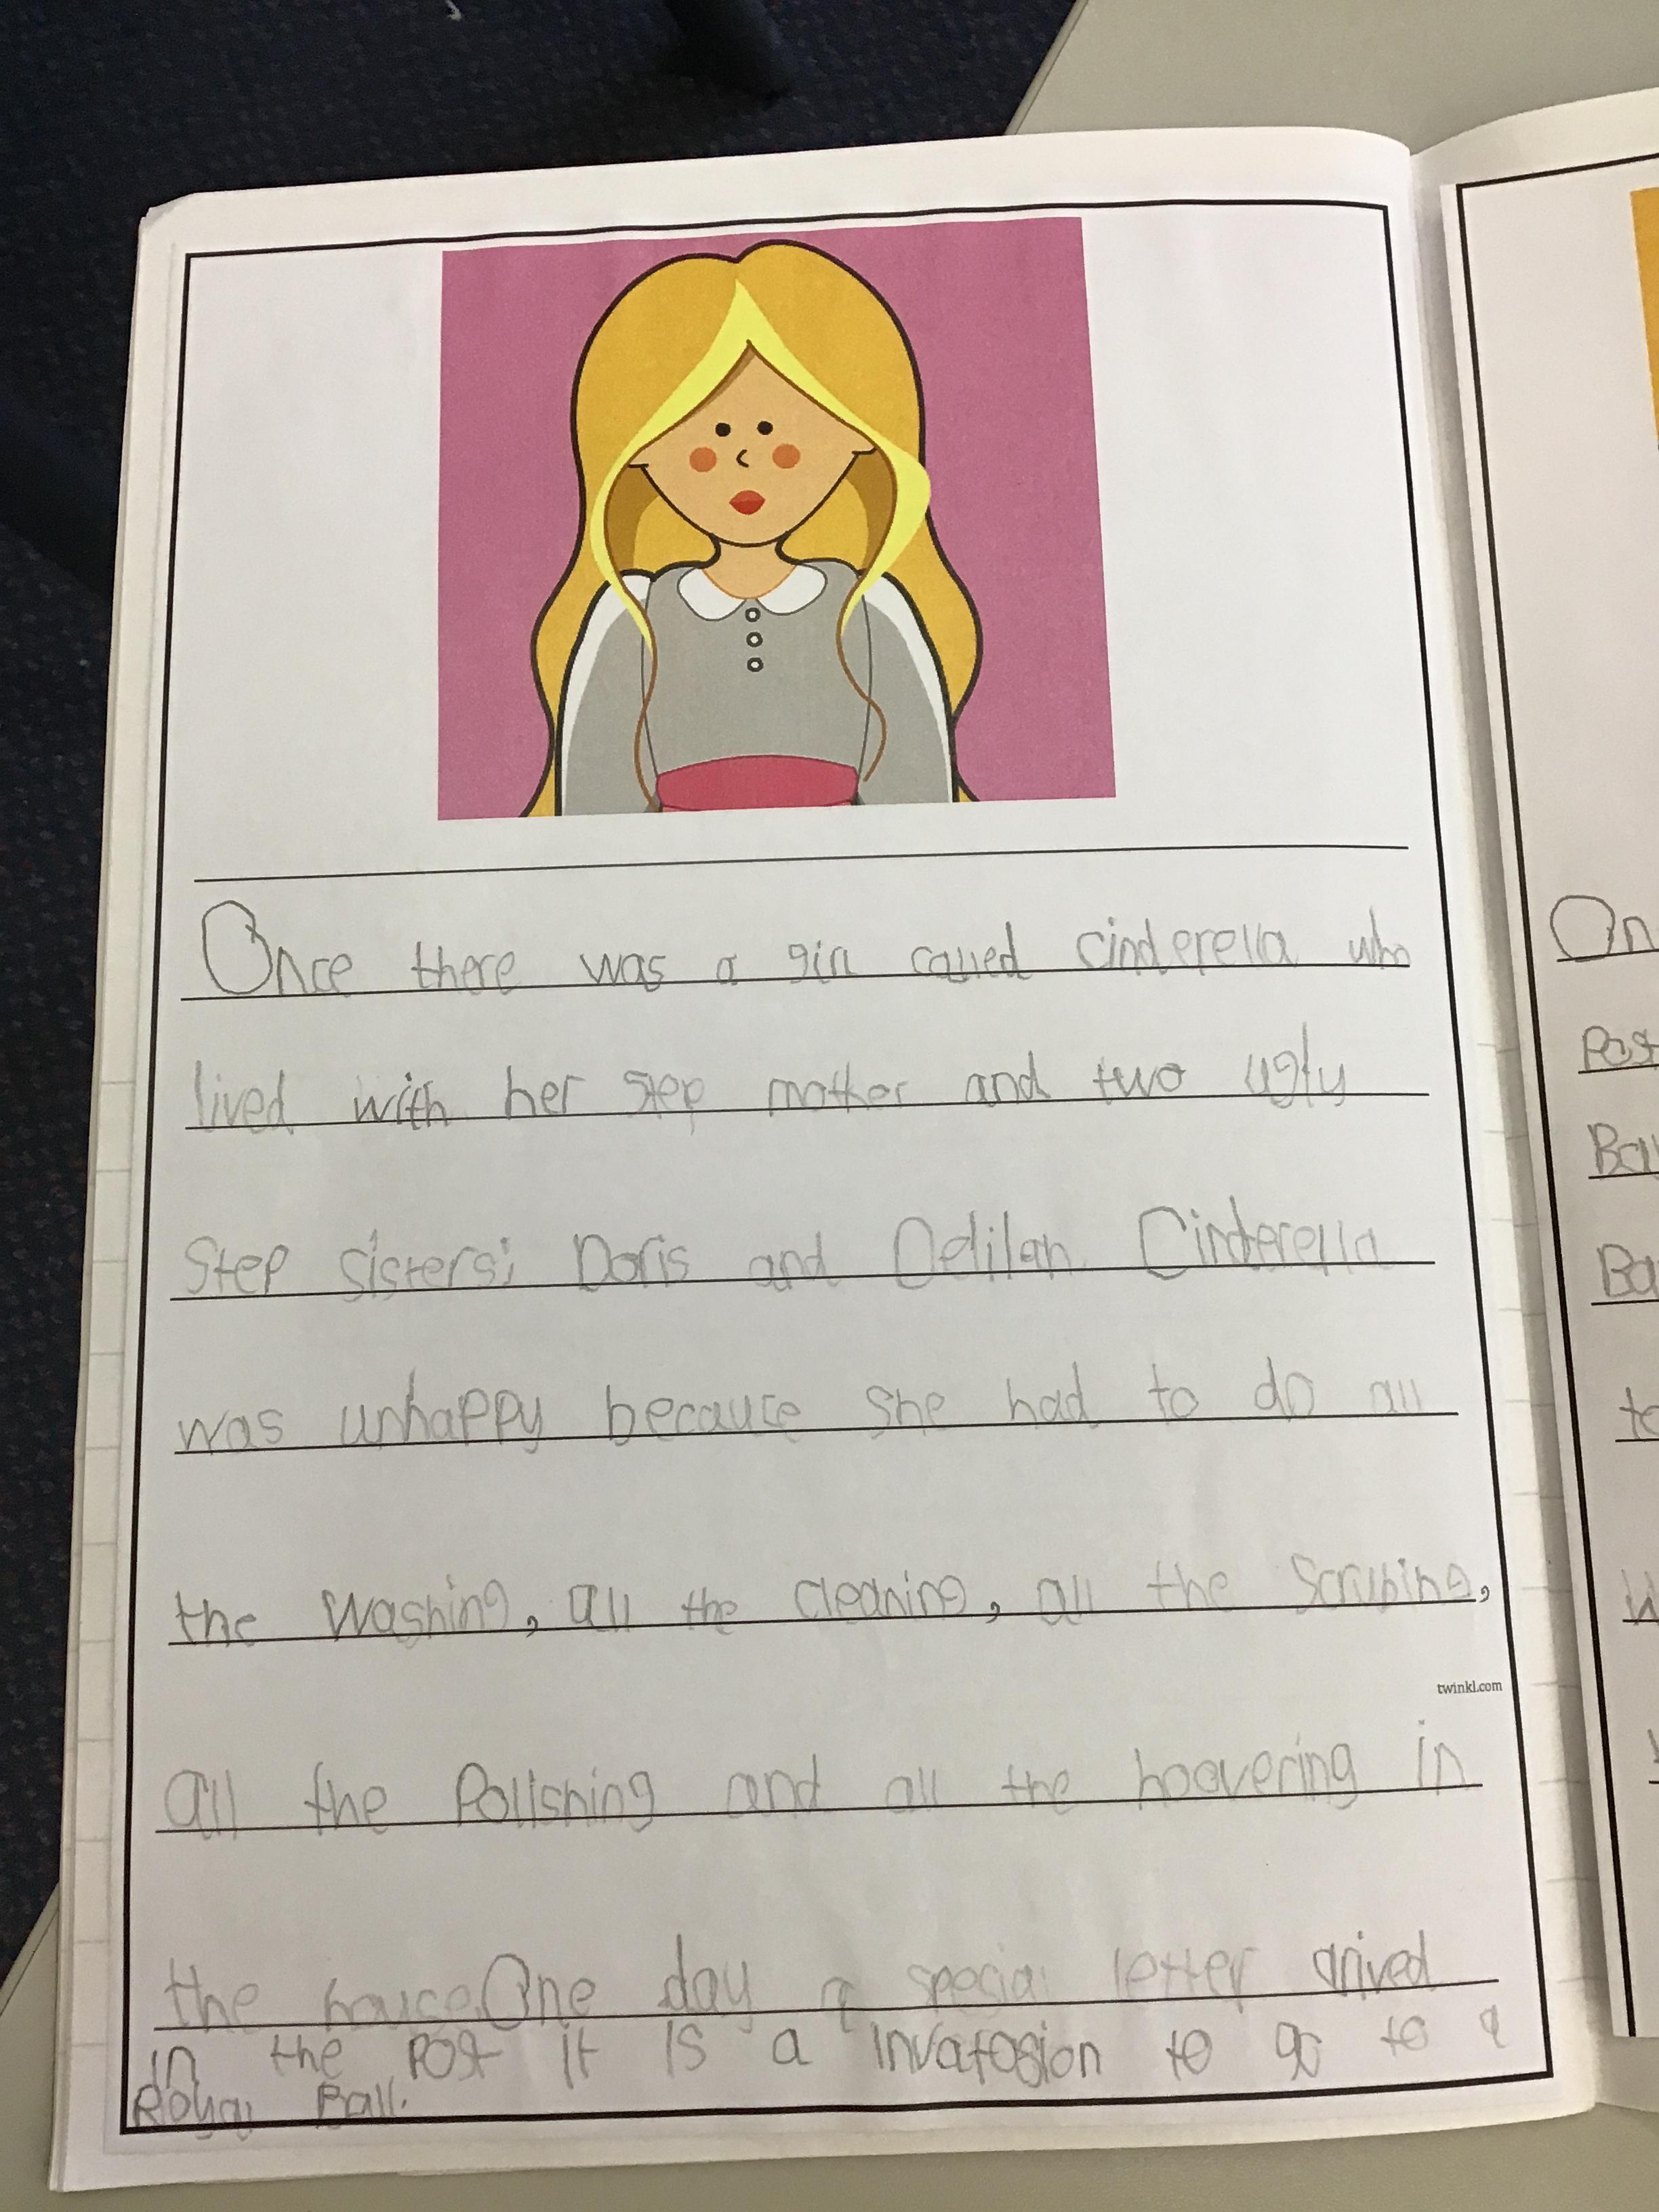 Once there was a girl called cinderella who
lived with her step mother and two ugly
Step sisters; Doris and Delilah. Cinderella
was unhappy becauce she had to do all
the washing, all the cleaning, all the Scrubing,
twinkl.com
all the Polishing and all the hoovering in
the houce. One day a special letter arived
in the Post it is a invatosion to go to a
Royal Ball.
On
Post
Ball
Ba
to